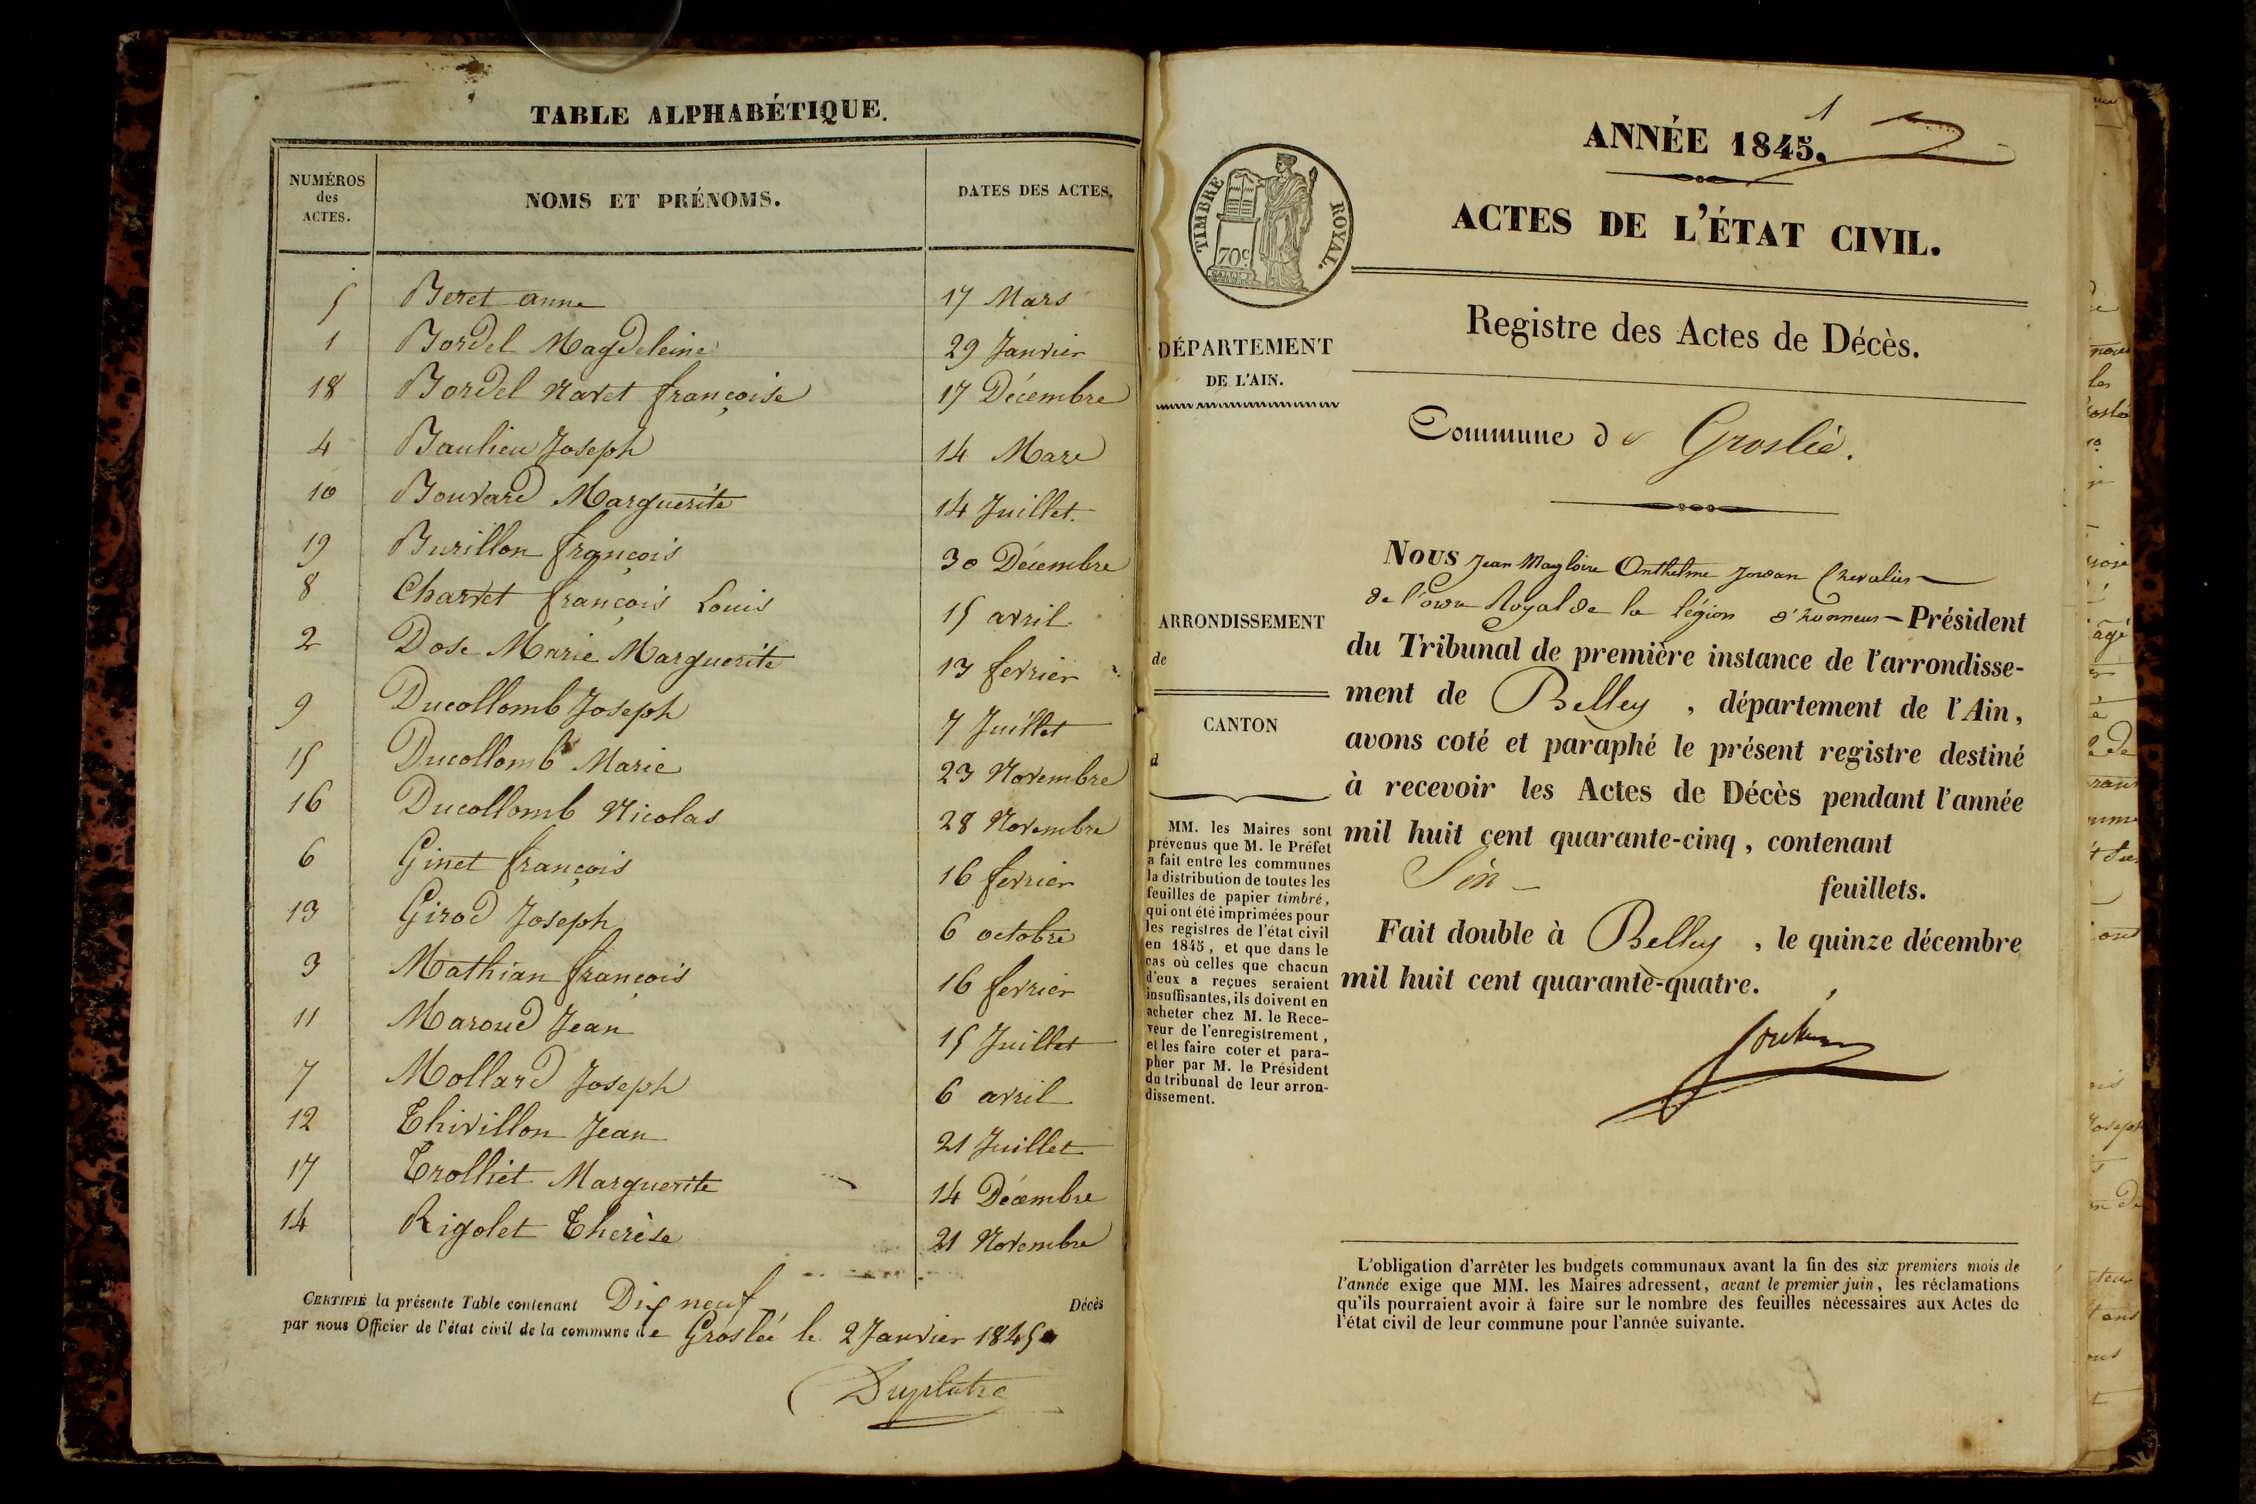 TABLE ALPHABÉTIQUE.
NUMÉROS
des
ACTES.
NOMS ET PRÉNOMS.
DATES DES ACTES.
5 Beret anne 17 Mars
1 Bordel Magdeleine 29 Janvier
18 Bordel Navet françoise 17 Décembre
4 Baulieu Joseph 14 Mars
10 Bouvard Marguerite 14 Juillet
19 Burillon françois 30 Décembre
8 Charvet françois Louis 15 avril
2 Dose Marie Marguerite 13 fevrier
9 Ducollomb Joseph 7 Juillet
15 Ducollomb Marie 23 Novembre
16 Ducollomb Nicolas 28 Novembre
6 Ginet françois 16 fevrier
13 Girod Joseph 6 octobre
3 Mathian françois 16 fevrier
11 Maroud Jean 15 Juillet
7 Mollard Joseph 6 avril
12 Thivillon Jean 21 Juillet
17 Trolliet Marguerite 14 Décembre
14 Rigolet Therèse 21 Novembre
CERTIFIÉ la présente Table contenant Dix neuf Décès
par nous Officier de l'état civil de la commune de Groslée le 2 Janvier 1845
Duplatre
1
ANNÉE 1845.
ACTES DE L'ÉTAT CIVIL.
TIMBRE ROYAL.
70c
Registre des Actes de Décès.
DÉPARTEMENT
DE L'AIN.
Commune de Groslée.
ARRONDISSEMENT
de
CANTON
d
MM. les Maires sont
prévenus que M. le Préfet
a fait entre les communes
la distribution de toutes les
feuilles de papier timbré,
qui ont été imprimées pour
les registres de l'état civil
en 1845, et que dans le
cas où celles que chacun
d'eux a reçues seraient
insuffisantes, ils doivent en
acheter chez M. le Rece-
veur de l'enregistrement,
et les faire coter et para-
pher par M. le Président
du tribunal de leur arron-
dissement.
NOUS Jean Magloire Anthelme Chevalier
de l'ordre Royal de la légion d'honneur Président
du Tribunal de première instance de l'arrondisse-
ment de Belley, département de l'Ain,
avons coté et paraphé le présent registre destiné
à recevoir les Actes de Décès pendant l'année
mil huit cent quarante-cinq, contenant
feuillets.
Fait double à Belley, le quinze décembre
mil huit cent quarante-quatre.
L'obligation d'arrêter les budgets communaux avant la fin des six premiers mois de
l'année exige que MM. les Maires adressent, avant le premier juin, les réclamations
qu'ils pourraient avoir à faire sur le nombre des feuilles nécessaires aux Actes de
l'état civil de leur commune pour l'année suivante.